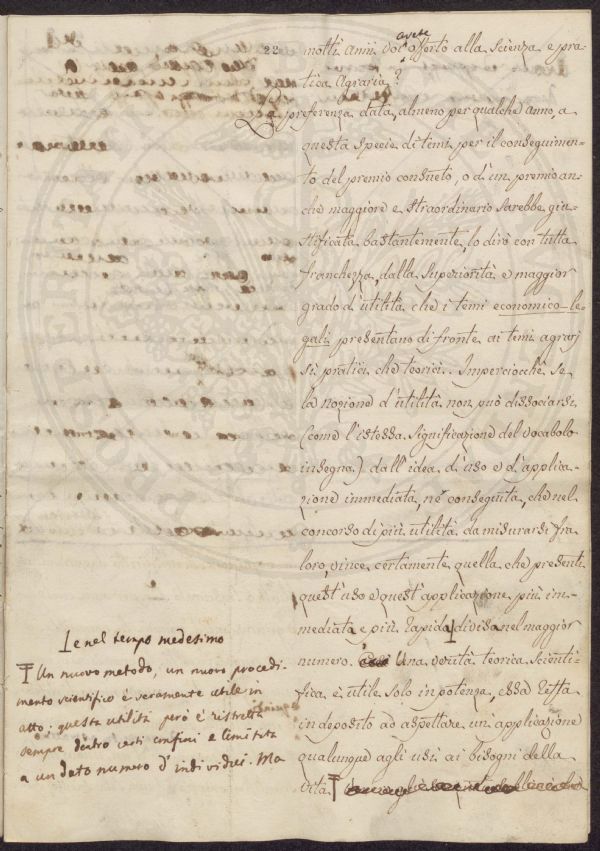 22
molti anni voi avete offerto alla scienza e pra-
tica Agraria?
La preferenza data, almeno per qualche anno, a
questa specie di temi per il conseguimen-
to del premio consueto, o d'un premio an-
che maggiore e straordinario sarebbe giu-
stificata bastantemente, lo dirò con tutta
franchezza, dalla superiorità e maggior
grado d'utilità che i temi economico-le-
gali presentano di fronte ai temi agrarj
sì pratici che teorici. Imperciocchè se
la nozione d'utilità non può dissociarsi
(come l'istessa significazione del vocabolo
insegna) dall'idea d'uso e d'applica-
zione immediata, ne conseguita, che nel
concorso di più utilità da misurarsi fra
loro, vince certamente quella che presenti
quest'uso e quest'applicazione più im-
mediata e più rapida divisa nel maggior
numero. Una verità teorica scienti-
fica, è utile solo in potenza, essa resta
in deposito ad aspettare un applicazione
qualunque agli usi ai bisogni della
vita.
e nel tempo medesimo
Un nuovo metodo, un nuovo procedi-
mento scientifico è veramente utile in
atto; questa utilità però è ristretta
sempre dentro certi confini e limitata
a un dato numero d'individui. Ma